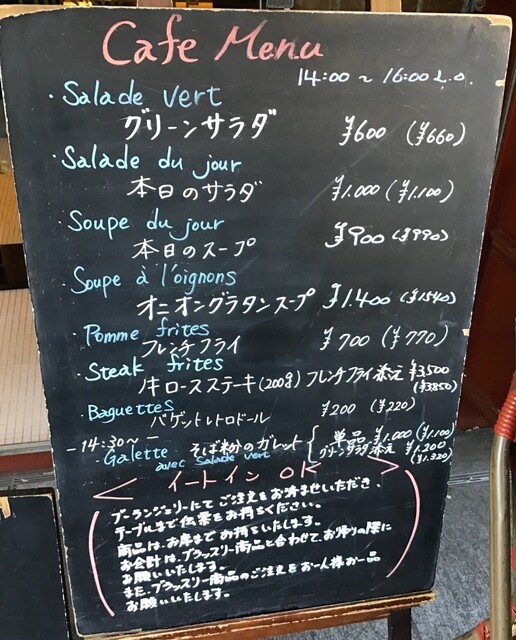 Cafe Menu
14:00 ~ 16:00 L.O.
・Salade vert
グリーンサラダ ¥600 (¥660)
・Salade du jour
本日のサラダ ¥1.000 (¥1.100)
・Soupe du jour
本日のスープ ¥900 (¥990)
・Soupe à l'oignons
オニオングラタンスープ ¥1.400 (¥1540)
・Pomme frites
フレンチフライ ¥700 (¥770)
・Steak frites
牛ロースステーキ(200g) フレンチフライ添え ¥3500
(¥3850)
・Baguettes
バゲットレトロドール ¥200 (¥220)
-14:30~-
・Galette そば粉のガレット { 単品 ¥1.000 (¥1.100)
avec salade vert グリーンサラダ添え ¥1.200
(¥1.320)
< イートイン OK >
ブーランジェリーにてご注文をお済ませいただき、
テーブルまで伝票をお持ちください。
商品は、お席までお持ちいたします。
お会計は、ブラッスリー商品と合わせて、お帰りの際に
お願いいたします。
また、ブラッスリー商品のご注文をお一人様お一品
お願いいたします。